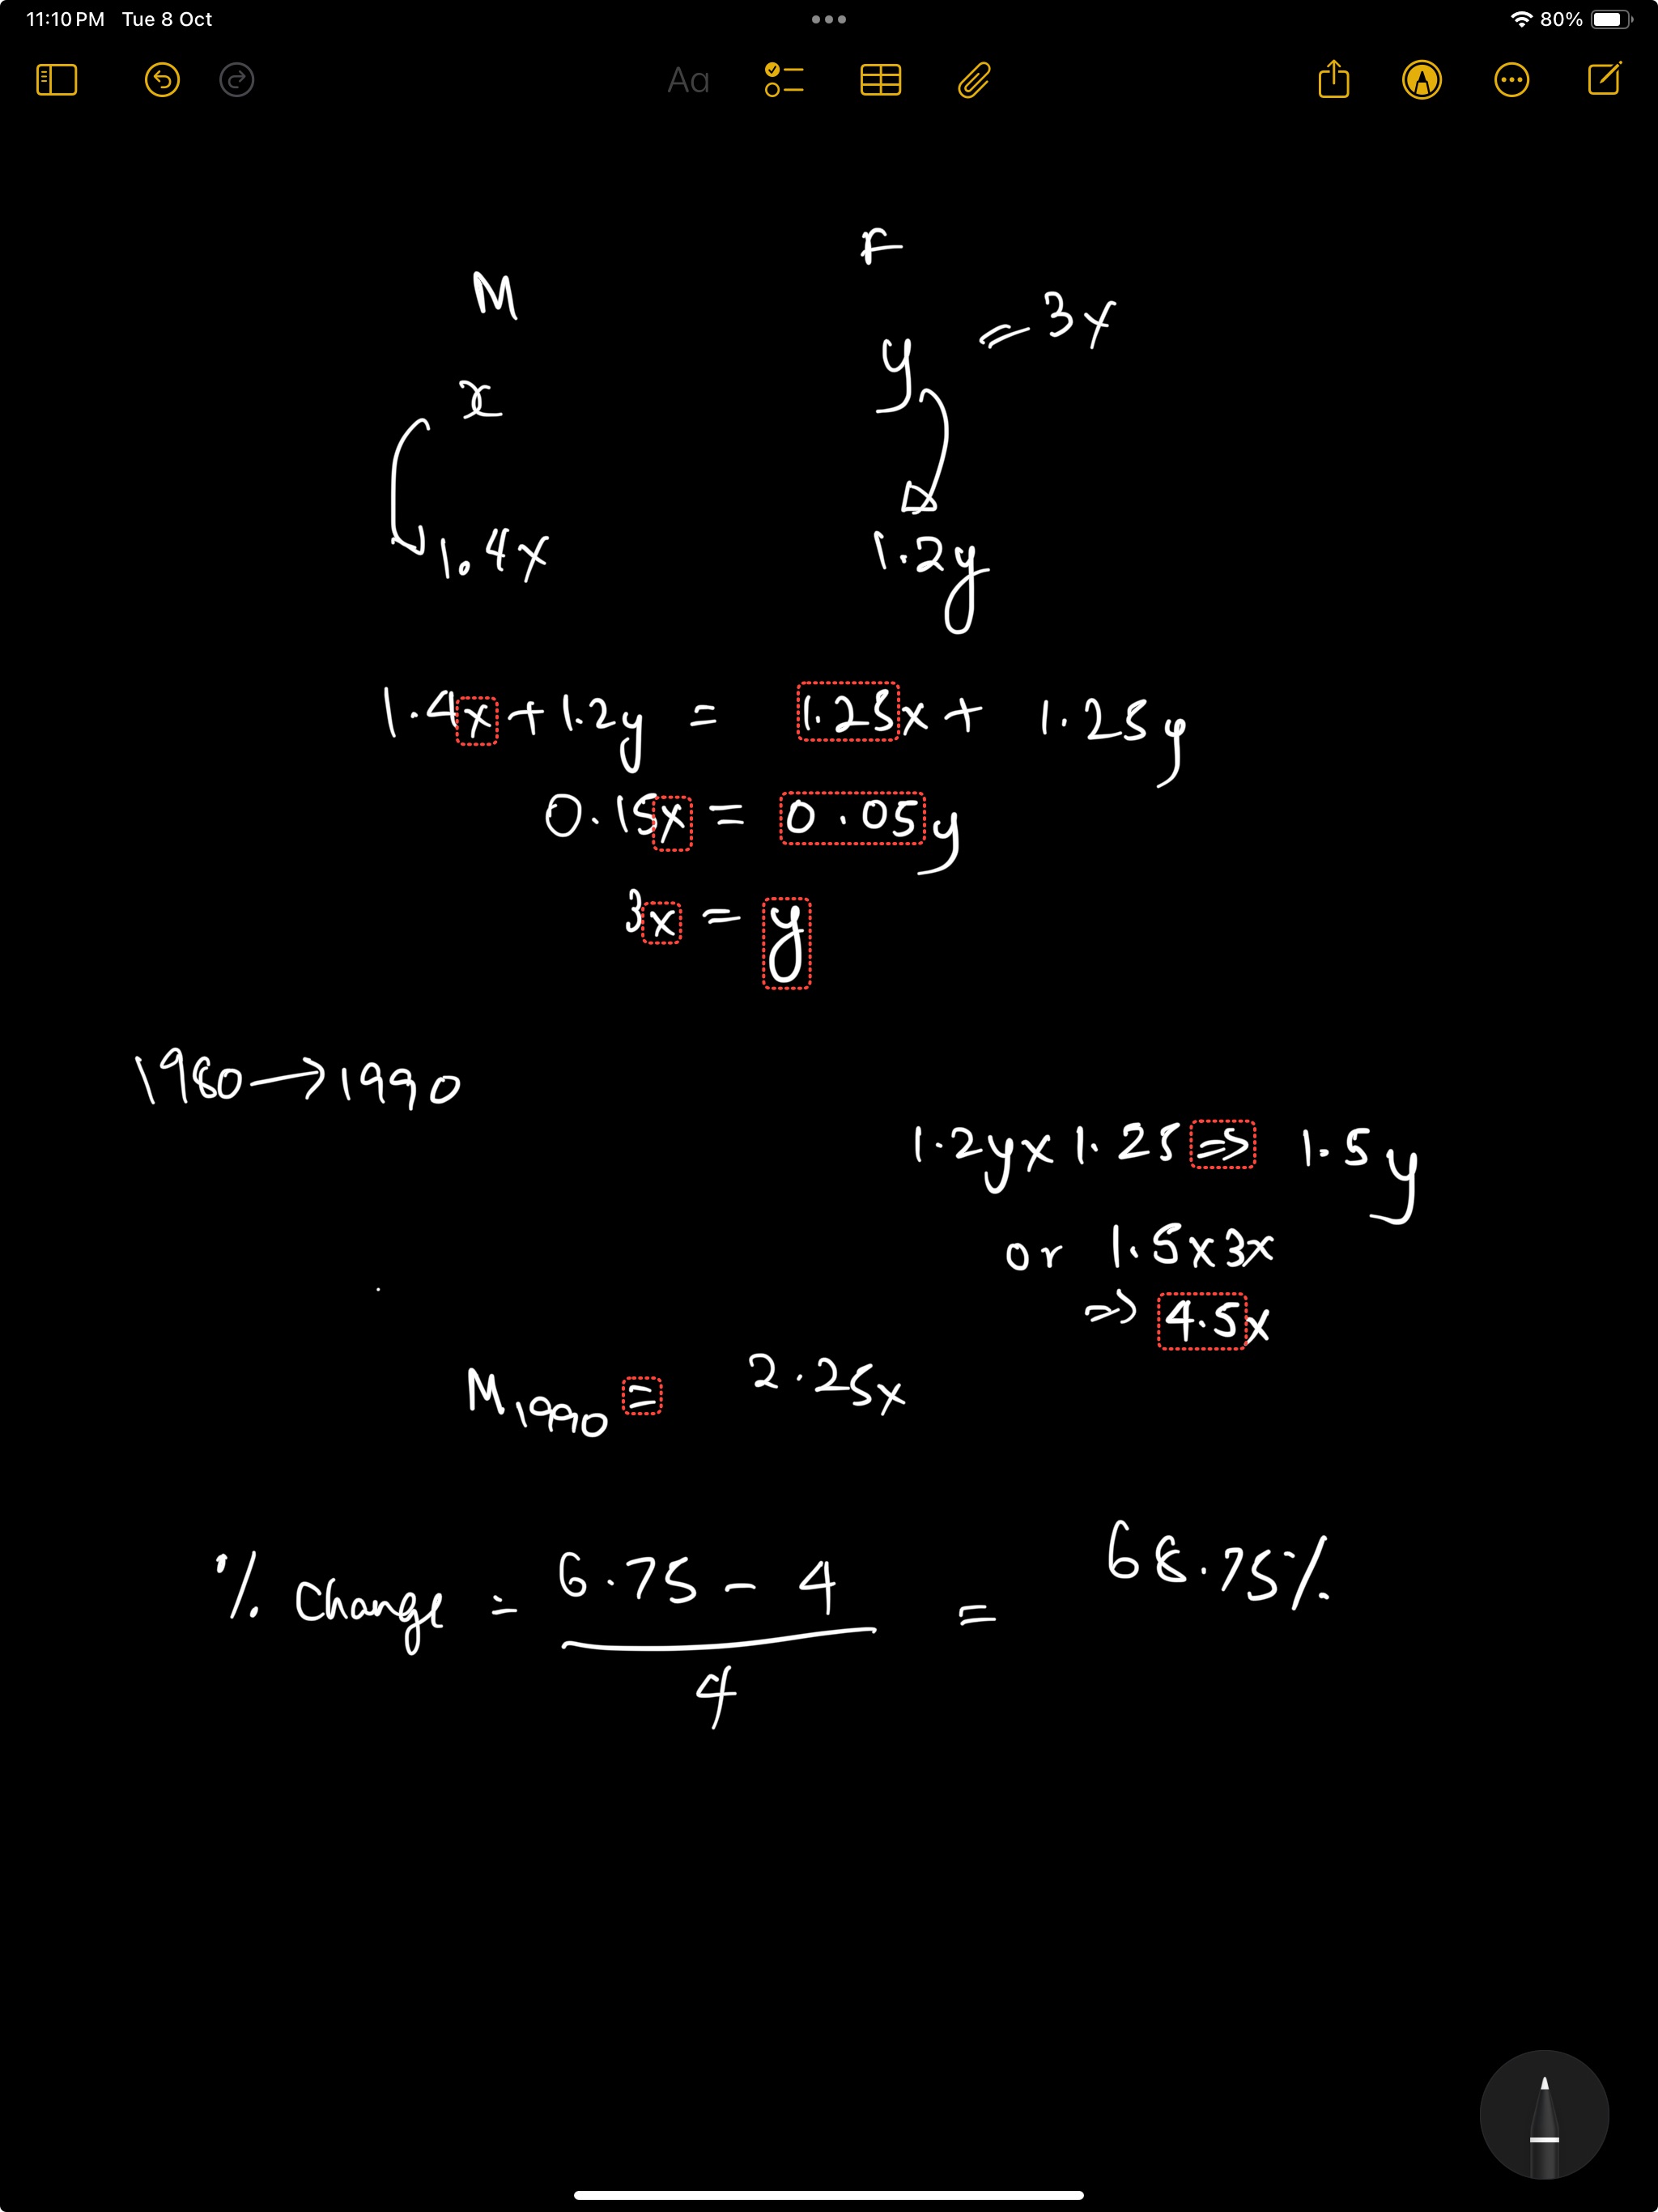 11:10 PM Tue 8 Oct 80%
Aa
M F
x y = 3x
1.4x 1.2y
1.4x + 1.2y = 1.25x + 1.25y
0.15x = 0.05y
3x = y
1980 → 1990
1.2y x 1.25 => 1.5y
or 1.5 x 3x
=> 4.5x
M1990 = 2.25x
% Change = 6.75 - 4 = 68.75%
4